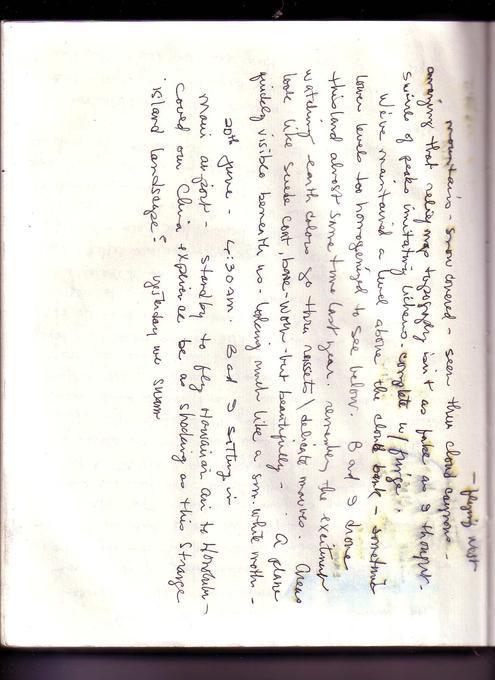 - flying west
mountains - snow covered - seen thru cloud canyon -
amazing that relief map topography isn't as fake as I thought.
swirls of peaks imitating lichens. complete w/ fringe.
We've maintained a level above the cloud bank - sometimes
lower levels too homogenized to see below. B and I drove
this land almost same time last year. remember the excitement
watching earth colors go thru russets \ delicate mauves. Areas
look like suede coat, bone-worn - but beautifully - . A plane
quickly visible beneath us. looking much like a sm. white moth -
20th June - 4:30am. B and I sitting in
Maui airport - standby to fly Hawaiian Air to Honolulu -
Could our China experience be as shocking as this strange
island landscape? yesterday we swam